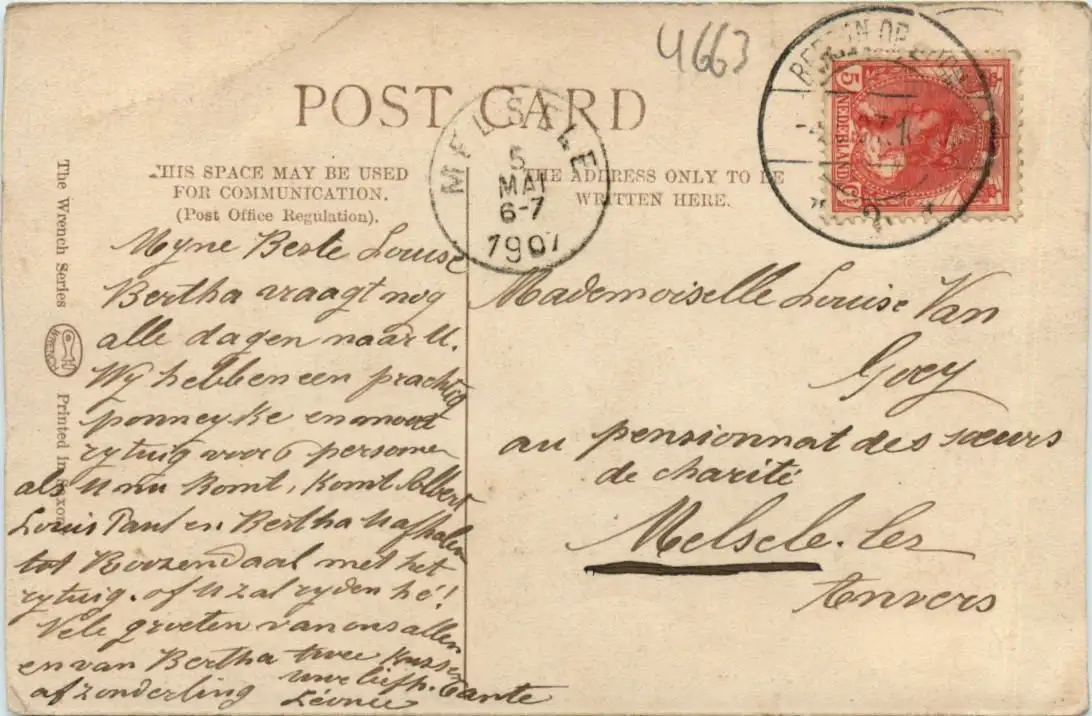 4663
POST CARD
THIS SPACE MAY BE USED
FOR COMMUNICATION.
(Post Office Regulation).
THE ADDRESS ONLY TO BE
WRITTEN HERE.
MELSELE
5
MAI
6-7
1907
BERGEN OP ZOOM
5 NEDERLAND Ct
The Wrench Series
WRENCH
Printed in Saxony
Myne Beste Louise
Bertha vraagt nog
alle dagen naar U.
Wy hebben een prachtig
ponneyke en
rytuig voor 6 personen
als U nu Komt, Komt Albert
Louis Paul en Bertha U afhalen
tot Roozendaal met het
rytuig. of U zal ryden hé!
Vele groeten van ons allen
en van Bertha twee Kussen
afzonderling uwe liefh. Tante
Léonie
Mademoiselle Louise Van
Goey
au pensionnat des sœurs
de charité
Melsele-lez
Anvers